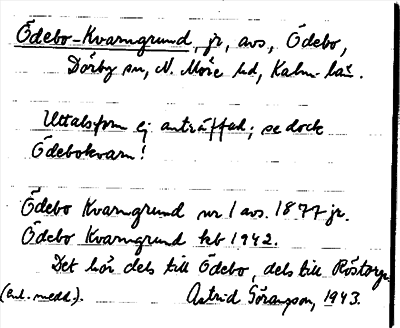 Ödebo-Kvarngrund, jr, avs, Ödebo,
Dörby sn, N. Möre hd, Kalm. län.
Uttalsform ej anträffad; se dock
Ödebokvarn!
Ödebo Kvarngrund nr 1 avs. 1877 jr.
Ödebo Kvarngrund kb 1942.
Det hör dels till Ödebo, dels till Röstorp.
(enl. medd.). Astrid Göransson, 1943.